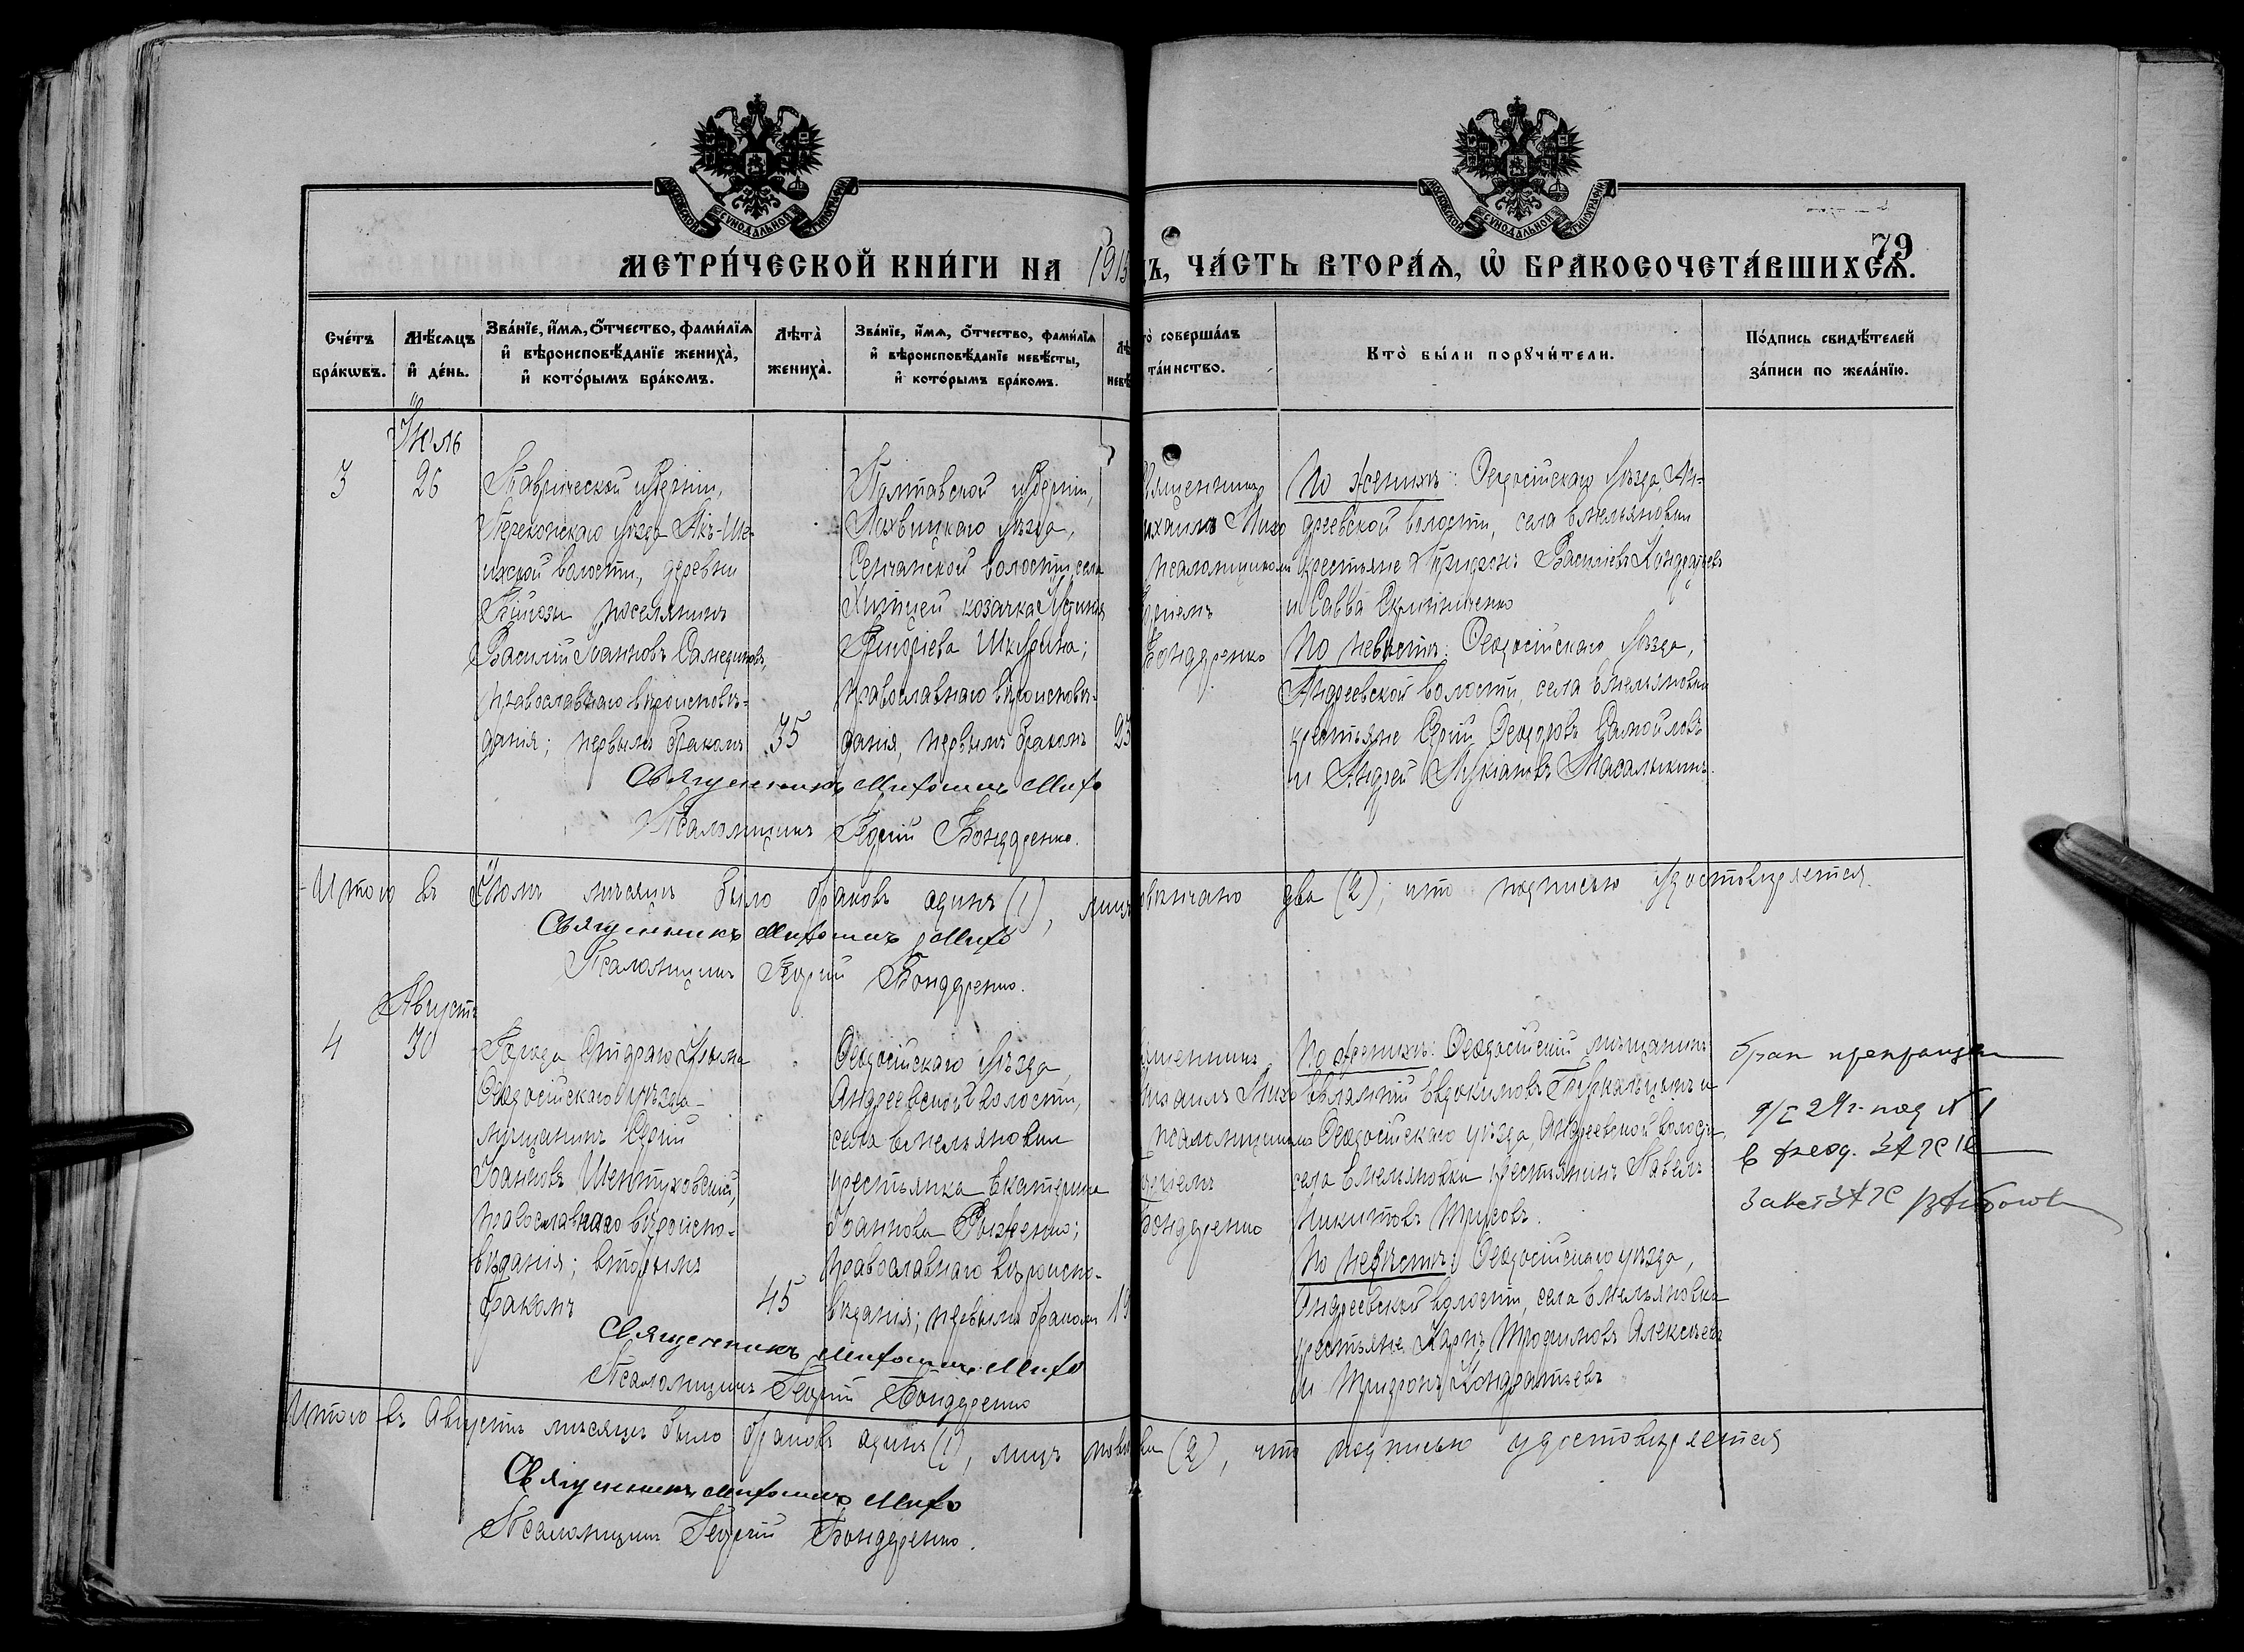 МОСКОВСКОЙ СУНОДАЛЬНОЙ ТИПОГРАФІИ
МОСКОВСКОЙ СУНОДАЛЬНОЙ ТИПОГРАФІИ
79
МЕТРИ́ЧЕСКОЙ КНИ́ГИ НА 1913
Ъ, ЧА́СТЬ ВТОРА́Ѧ, Ѽ БРАКОСОЧЕТА́ВШИХСѦ.
Сче́тъ бра́кѡвъ.
Мѣ́сѧцъ и҆ де́нь.
Зва́нїе, и҆́мѧ, ѻ҆́тчество, фами́лїѧ
и҆ вѣроисповѣ́данїе жениха̀,
и҆ кото́рымъ бра́комъ.
Лѣта̀ жениха̀.
Зва́нїе, и҆́мѧ, ѻ҆́тчество, фами́лїѧ
и҆ вѣроисповѣ́данїе невѣ́сты,
и҆ кото́рымъ бра́комъ.
то̀ соверша́лъ
та́инство.
Кто̀ бы́ли порꙋчи́тели.
По́дпись свидѣ́телей
за́писи по жела́нїю.
Іюль
3
26
Таврической губерніи,
Перекопскаго уѣзда Акъ-Ше-
ихской волости, деревни
поселянинъ
Василій Іоанновъ
православнаго вѣроисповѣ-
данія; первымъ бракомъ
35
Полтавской губерніи,
Лохвицкаго уѣзда,
Сенчанской волости, села
козачка
Григоріева Шкурина;
православнаго вѣроисповѣ-
данія, первымъ бракомъ
23
ященникъ
ихаилъ Михо
псаломщикомъ
Бондаренко
По женихѣ: Ѳеодосійскаго уѣзда, Ан-
дреевской волости, села Емельяновки
крестьяне Трифонъ Василіевъ Кондратьевъ
и Савва
По невѣстѣ: Ѳеодосійскаго уѣзда,
Андреевской волости, села Емельяновки
крестьяне Сергій Ѳеодоровъ Самойловъ
и Андрей Лукіановъ Масалыкинъ.
Священникъ Михаилъ Михо
Псаломщикъ Георгій Бондаренко.
Итого въ Іюлѣ мѣсяцѣ было браковъ одинъ (1), лицъ
повѣнчано два (2); что подписью удостовѣряется.
Священникъ Михаилъ Михо
Псаломщикъ Георгій Бондаренко.
Августъ
4
30
Города Стараго Крыма
Ѳеодосійскаго уѣзда
мѣщанинъ Сергій
Іоанновъ Шентуховскій,
православнаго вѣроиспо-
вѣданія; вторымъ
бракомъ
45
Ѳеодосійскаго уѣзда,
Андреевской волости,
села Емельяновки
крестьянка Екатерина
Іоаннова Рыженко;
православнаго вѣроиспо-
вѣданія; первымъ бракомъ
19
ященникъ
ихаилъ Михо
псаломщикомъ
Бондаренко
По женихѣ: Ѳеодосійскій мѣщанинъ
Евлампій Евдокимовъ и
Ѳеодосійскаго уѣзда, Андреевской волости,
села Емельяновки крестьянинъ Павелъ
Никитовъ Трусовъ.
По невѣстѣ: Ѳеодосійскаго уѣзда,
Андреевской волости, села Емельяновки
крестьяне Карпъ Трофимовъ Алексѣевъ
и Трифонъ Кондратьевъ
брак прекращен
9/I 29г. под № 1
в Феод. ЗАГСе
Завет ЗАГС
Священникъ Михаилъ Михо
Псаломщикъ Георгій Бондаренко
Итого въ Августѣ мѣсяцѣ было браковъ одинъ (1), лицъ
(2), что подписью удостовѣряется
Священникъ Михаилъ Михо
Псаломщикъ Георгій Бондаренко.